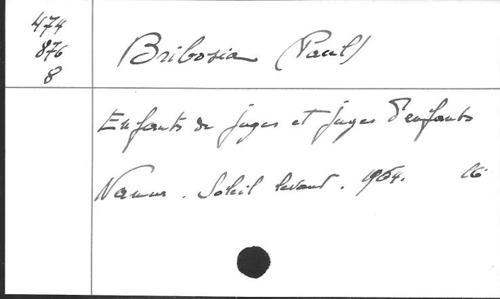 474
876
8
Bribosia (Paul)
Enfants de juges et juges d'enfants
Namur. Soleil levant. 1964. 16